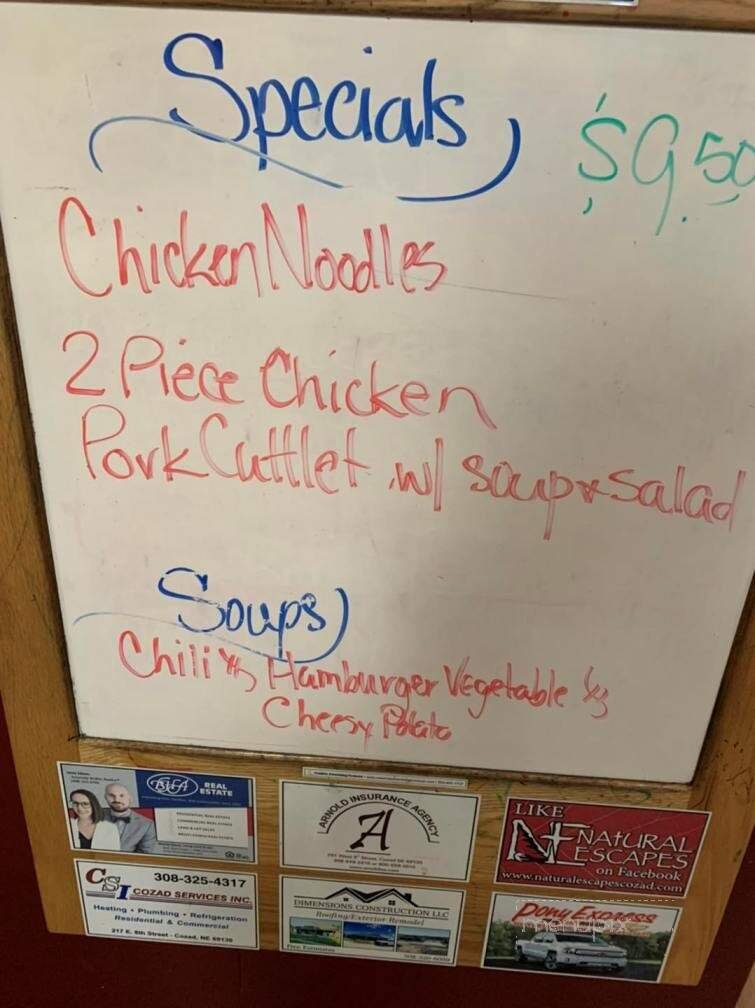 Specials
$9.50
Chicken Noodles
2 Piece Chicken
Pork Cuttlet w/ soup & salad
Soups
Chili Hamburger Vegetable
Cheesy Potato
REAL ESTATE
ARNOLD INSURANCE AGENCY
A
LIKE
NATURAL ESCAPES
on Facebook
www.naturalescapescozad.com
CSI
308-325-4317
COZAD SERVICES INC.
Heating • Plumbing • Refrigeration
Residential & Commercial
217 E. 6th Street - Cozad, NE 69130
DIMENSIONS CONSTRUCTION LLC
Roofing/Exterior Remodel
Free Estimates
Pony Express